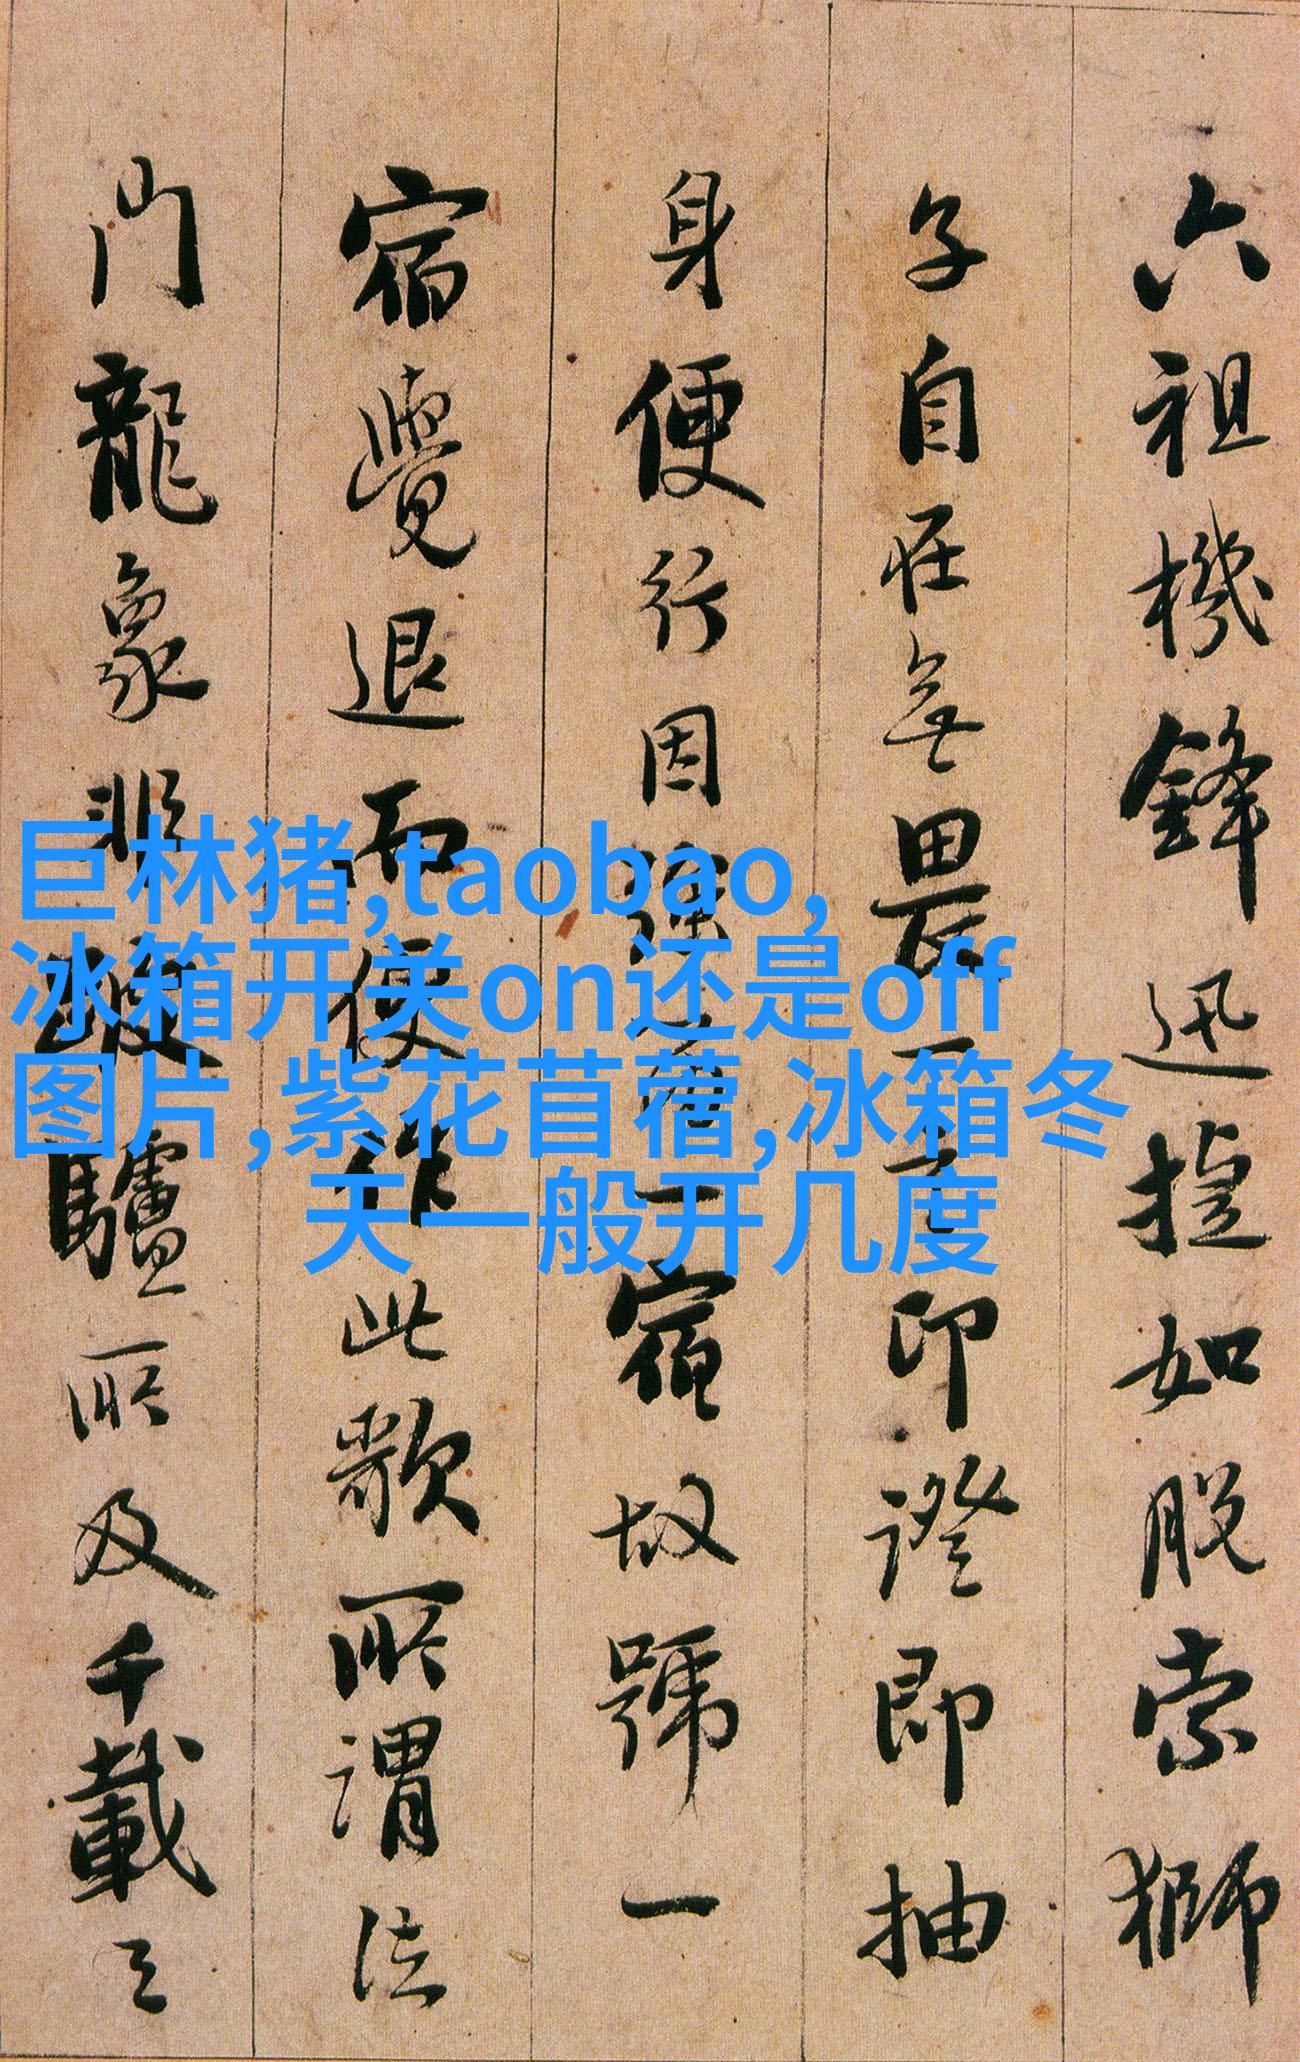 六祖機鋒迅捷如脫索獅
子自在無畏一言印證即抽
身便行因強留一宿故號一
宿覺退而便作此歌所謂法
門龍象非驢所及千載之
巨林猪,taobao,
冰箱开关on还是off
图片,紫花苜蓿,冰箱冬
天一般开几度